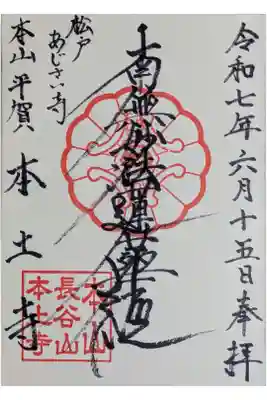 令和七年六月十五日奉拝
南無妙法蓮華経
松戸
あじさい寺
本山平賀 本土寺
本山
長谷山
本土寺